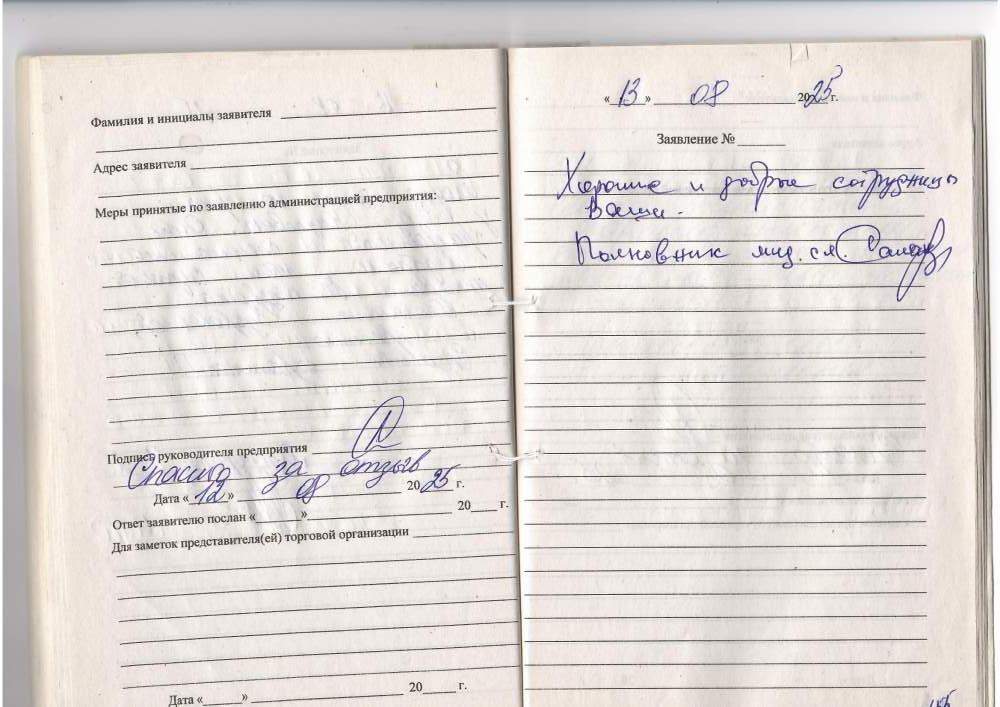 Фамилия и инициалы заявителя
Адрес заявителя
Меры принятые по заявлению администрацией предприятия:
Подпись руководителя предприятия
Спасибо за отзыв
Дата «12» 08 2025 г.
Ответ заявителю послан «      » 20      г.
Для заметок представителя(ей) торговой организации
Дата «      » 20      г.
«13» 08 2025 г.
Заявление №
Хорошие и добрые сотрудницы
Ваши.
Полковник мид. сл.